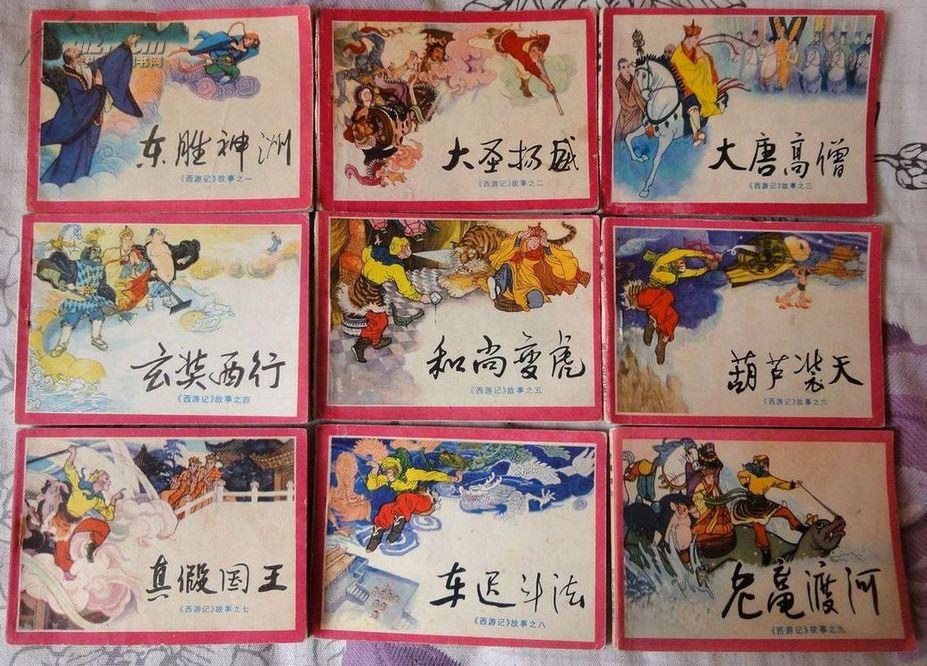 东胜神洲
《西游记》故事之一
大圣扬威
《西游记》故事之二
大唐高僧
《西游记》故事之三
玄奘西行
《西游记》故事之四
和尚变虎
《西游记》故事之五
葫芦装天
《西游记》故事之六
真假国王
《西游记》故事之七
车迟斗法
《西游记》故事之八
老鼋渡河
《西游记》故事之九